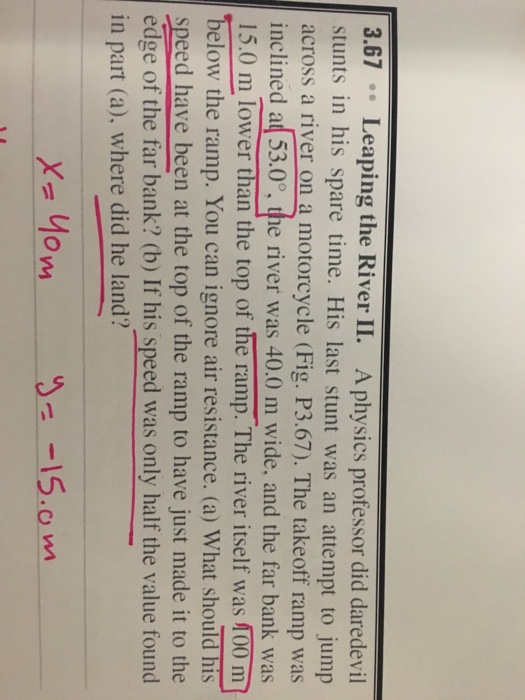 3.67 •• Leaping the River II. A physics professor did daredevil
stunts in his spare time. His last stunt was an attempt to jump
across a river on a motorcycle (Fig. P3.67). The takeoff ramp was
inclined at 53.0°, the river was 40.0 m wide, and the far bank was
15.0 m lower than the top of the ramp. The river itself was 100 m
below the ramp. You can ignore air resistance. (a) What should his
speed have been at the top of the ramp to have just made it to the
edge of the far bank? (b) If his speed was only half the value found
in part (a), where did he land?
x = 40m y = -15.0m